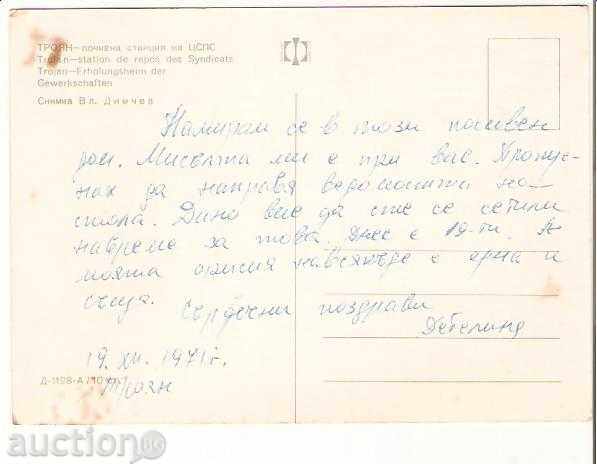 ТРОЯН—почивна станция на ЦСПС
Trojan—station de repos des Syndicats
Trojan—Erholungsheim der
Gewerkschaften
Снимка Вл. Димчев
Намирам се в този почивен
дом. Мисълта ми е при вас. Пропус-
нах да направя ведомостта на
стола. Дано вие да сте се сетили
навреме за това. Днес е 19-ти. А
моята орисия навсякъде е една и
съща.
Сърдечни поздрави
19. XII. 1971 г.
Троян
Д-1198-А
auction.BG